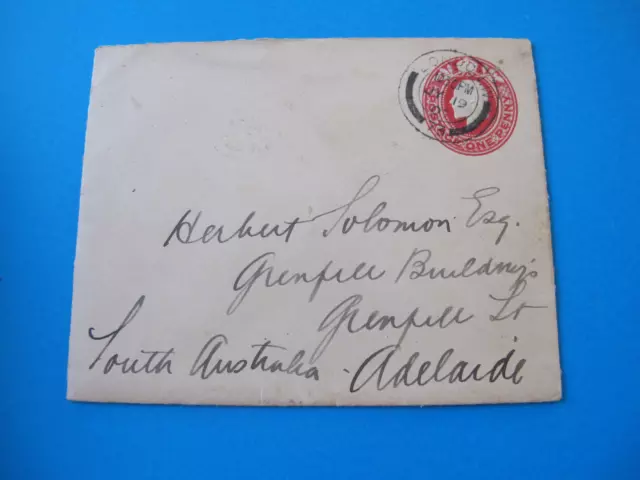 POSTAGE ONE PENNY
LONDON
PM
12
Herbert Solomon Esq.
Grenfell Buildings
Grenfell St
South Australia - Adelaide